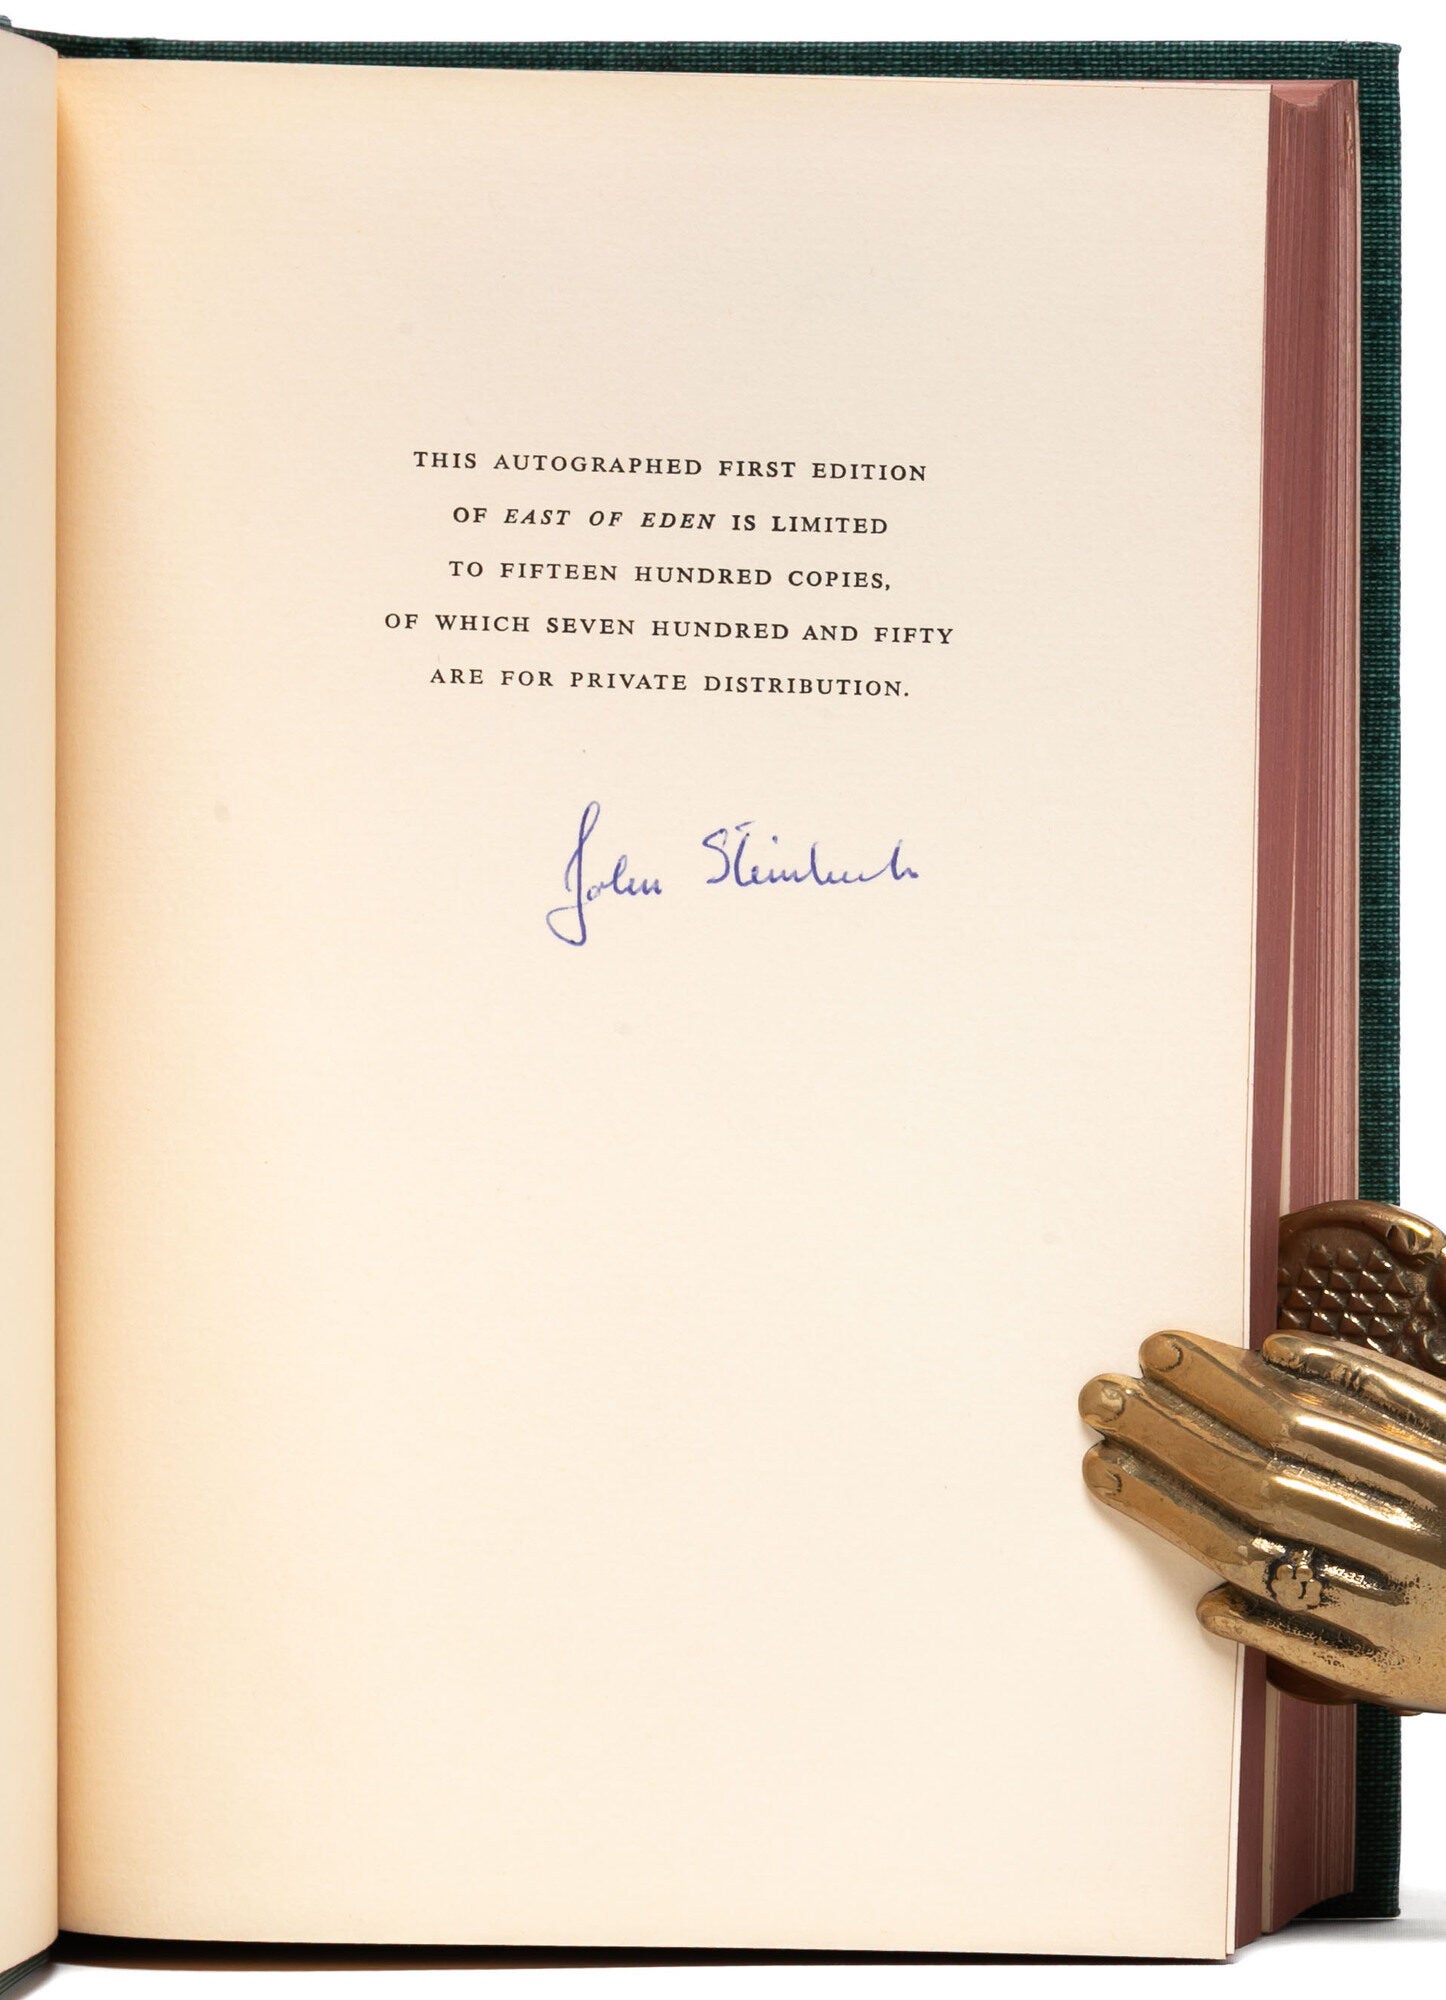 THIS AUTOGRAPHED FIRST EDITION
OF EAST OF EDEN IS LIMITED
TO FIFTEEN HUNDRED COPIES,
OF WHICH SEVEN HUNDRED AND FIFTY
ARE FOR PRIVATE DISTRIBUTION.
John Steinbeck